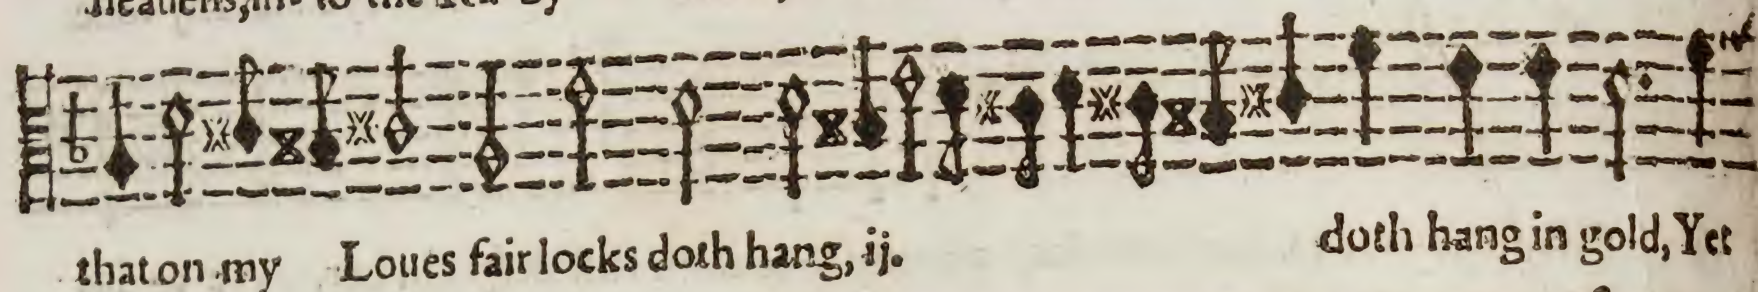 heauens,
that on my Loues fair locks doth hang, ij. doth hang in gold, Yet